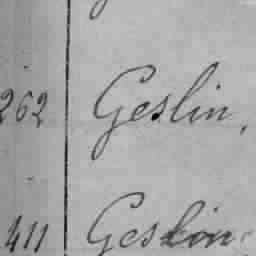 262 Geslin,
411 Geslin